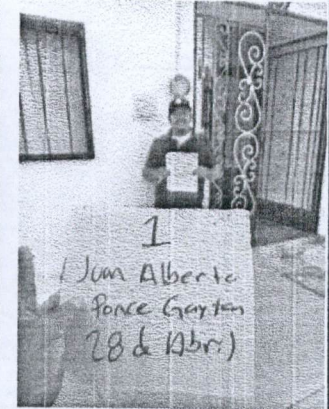 1
(Juan Alberto
Ponce Gaytan
28 de Abril)